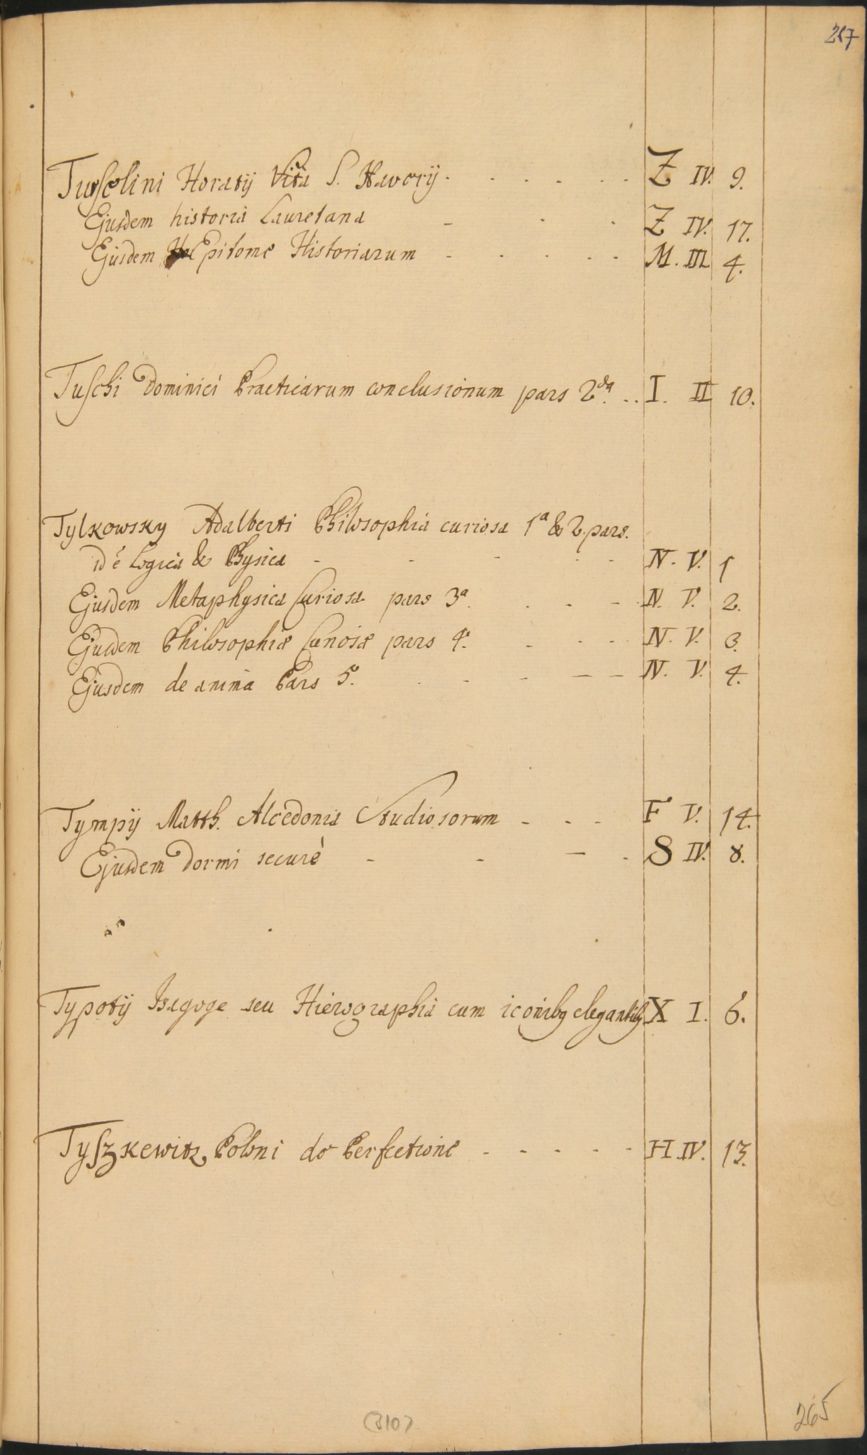 217
Tursolini Horatij Vita S. Xaverij - - - - - Z IV. 9.
Ejusdem historia Lauretana - - - Z IV. 17.
Ejusdem Epitome Historiarum - - - - - M. III 4.
Tuschi Dominici Practicarum conclusionum pars 2da. .. I. II 10.
Tylkowsky Adalberti Philosophia curiosa 1a & 2 pars.
id ē logica & Physica - - - - - N. V. 1
Ejusdem Metaphysica Curiosa pars 3a. - - - N. V. 2.
Ejusdem Philosophiæ Curiosæ pars 4. - - - N. V. 3.
Ejusdem de anima Pars 5. - - - - - N. V. 4.
Tympij Matth. Alcedonia Studiosorum - - - F V. 14.
Ejusdem Dormi securè - - - - S IV. 8.
Typotij Isagoge seu Hierographia cum iconibq elegantibq X I. 6.
Tyszkewitz Poloni de Perfectione - - - - - H IV. 13.
(310)
265